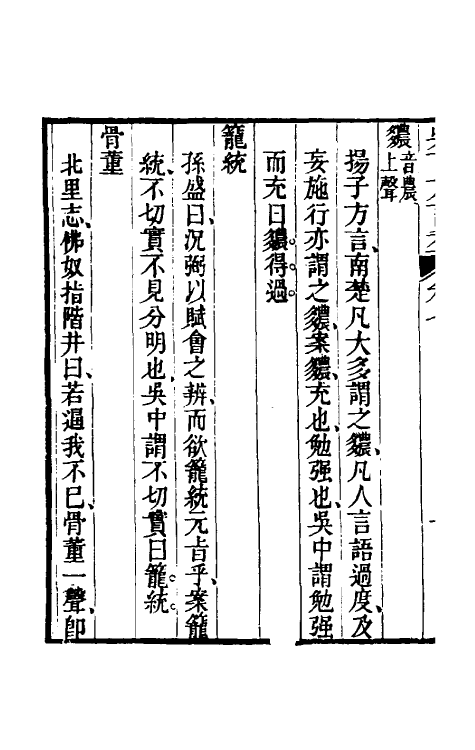 音農上聲
揚子方言、南楚凡大多謂之、凡人言語過度、及
妄施行亦謂之、案、充也、勉强也、吳中謂勉强
而充曰。得。過。
籠統
孫盛曰、況弼以賦會之辨、而欲籠統元旨乎、案籠
統、不切實不見分明也、吳中謂不切實曰籠。統。
骨董
北里志、佛奴指階井曰、若逼我不已、骨董一聲、卽